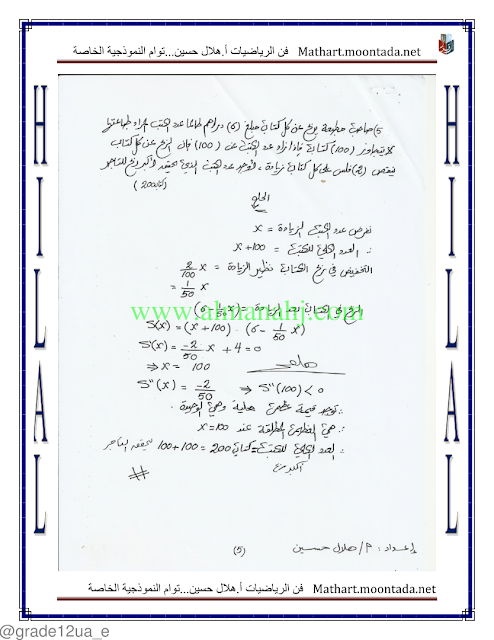 فن الرياضيات أ.هلال حسين...توأم النموذجية الخاصة Mathart.moontada.net
5) صاحب مطبعة يربح عن كل كتاب مبلغ (6) دراهم طالما عدد الكتب المراد طباعتها
لا يتجاوز (100) كتاب فإذا زاد عدد الكتب عن (100) فإن الربح عن كل كتاب
ينقص (2) فلس على كل كتاب زيادة ، أوجد عدد الكتب الذي يحقق أكبر ربح للتاجر
(200 كتاب)
الحل
نفرض عدد الكتب الزيادة = x
∴ العدد الكلي للكتب = x+100
التخفيض في ربح الكتاب نظير الزيادة = 2/100 x
= 1/50 x
الربح في الكتاب بعد الزيادة = (6 - 1/50 x)
www.almanahj.com
S(x) = (x+100) · (6 - 1/50 x)
S'(x) = -2/50 x + 4 = 0
⇒ x = 100
S''(x) = -2/50 ⇒ S''(100) < 0
∴ توجد قيمة عظمى محلية وهي الوحيدة
∴ هي العظمى المطلقة عند x = 100
∴ العدد الكلي للكتب = 100+100 = 200 كتاب تحقق للتاجر
أكبر ربح
#
إعداد : م/ هلال حسين
(5)
فن الرياضيات أ.هلال حسين...توأم النموذجية الخاصة Mathart.moontada.net
HILAL
HILAL
@grade12ua_e